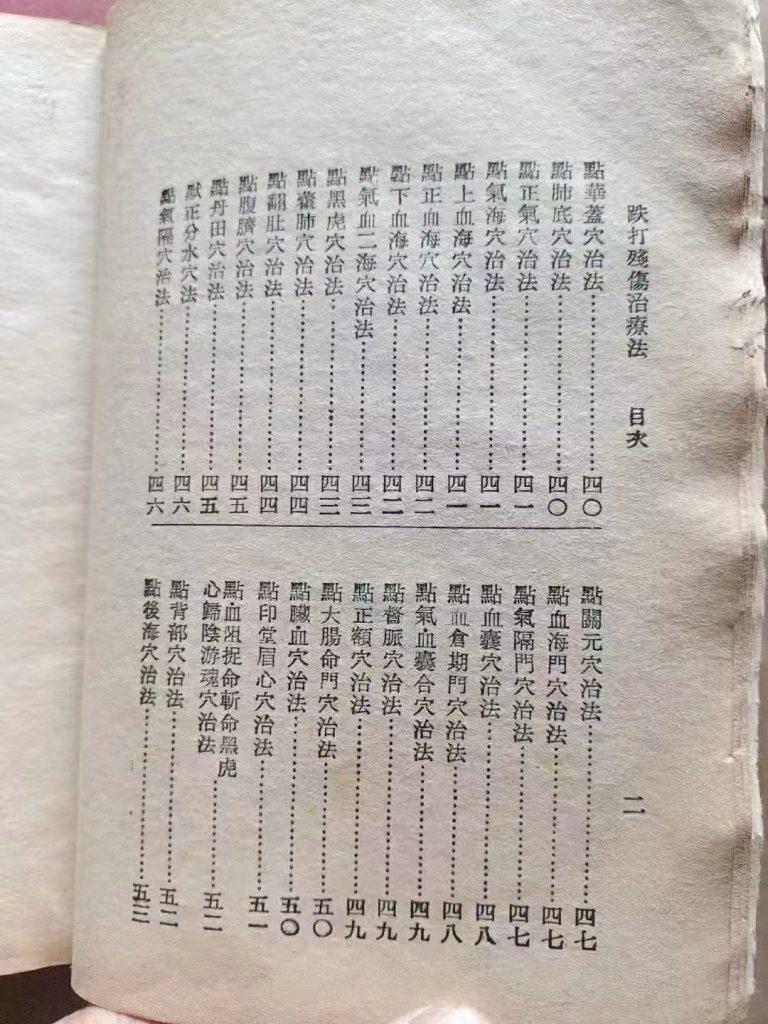 跌打殘傷治療法　目次　二
點華蓋穴治法……四〇
點肺底穴治法……四〇
點正氣穴治法……四一
點氣海穴治法……四一
點上血海穴治法……四一
點正血海穴治法……四二
點下血海穴治法……四二
點氣血二海穴治法……四三
點黑虎穴治法……四三
點藿肺穴治法……四四
點翻肚穴治法……四四
點腹臍穴治法……四五
點丹田穴治法……四五
默正分水穴法……四六
點氣隔穴治法……四六
點關元穴治法……四七
點血海門穴治法……四七
點氣隔門穴治法……四七
點血囊穴治法……四八
點血倉期門穴治法……四八
點氣血囊合穴治法……四九
點督脈穴治法……四九
點正額穴治法……四九
點大腸命門穴治法……五〇
點臟血穴治法……五〇
點印堂眉心穴治法……五一
點血阻捉命斬命黑虎
心歸陰游魂穴治法……五二
點背部穴治法……五二
點後海穴治法……五三